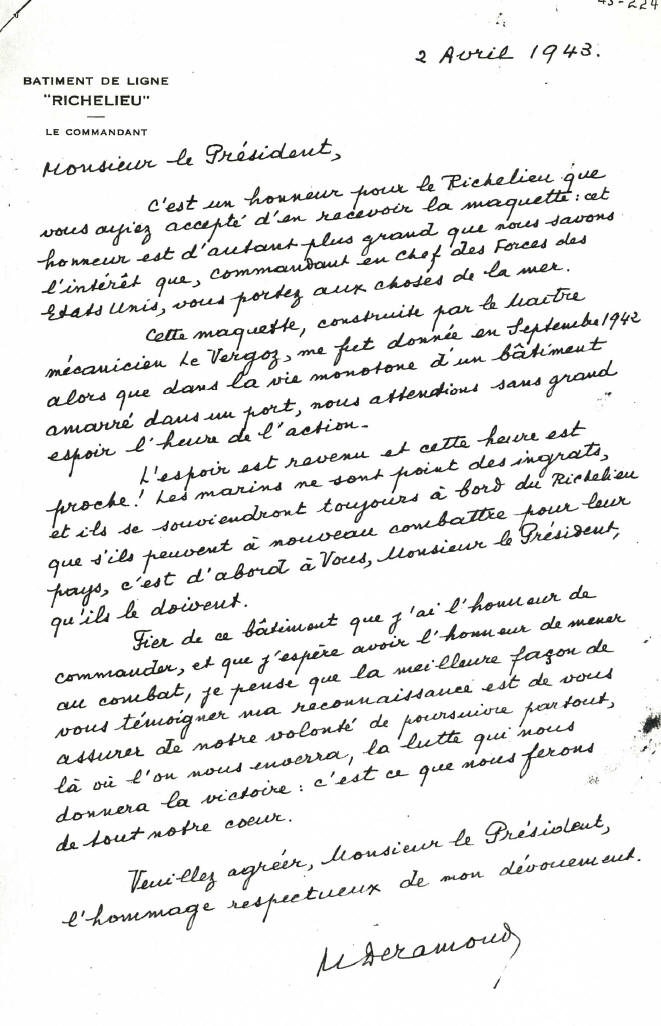 43-224
2 Avril 1943.
BATIMENT DE LIGNE
"RICHELIEU"
LE COMMANDANT
Monsieur le Président,
C'est un honneur pour le Richelieu que
vous ayiez accepté d'en recevoir la maquette : cet
honneur est d'autant plus grand que nous savons
l'intérêt que, commandant en chef des Forces des
Etats Unis, vous portez aux choses de la mer.
Cette maquette, construite par le Maitre
mécanicien Le Vergoz, me fut donnée en Septembre 1942
alors que dans la vie monotone d'un bâtiment
amarré dans un port, nous attendions sans grand
espoir l'heure de l'action.
L'espoir est revenu et cette heure est
proche ! Les marins ne sont point des ingrats,
et ils se souviendront toujours à bord du Richelieu
que s'ils peuvent à nouveau combattre pour leur
pays, c'est d'abord à Vous, Monsieur le Président,
qu'ils le doivent.
Fier de ce bâtiment que j'ai l'honneur de
commander, et que j'espère avoir l'honneur de mener
au combat, je pense que la meilleure façon de
vous témoigner ma reconnaissance est de vous
assurer de notre volonté de poursuivre partout,
là où l'on nous enverra, la lutte qui nous
donnera la victoire : c'est ce que nous ferons
de tout notre coeur.
Veuillez agréér, Monsieur le Président,
l'hommage respectueux de mon dévouement.
M Deramond